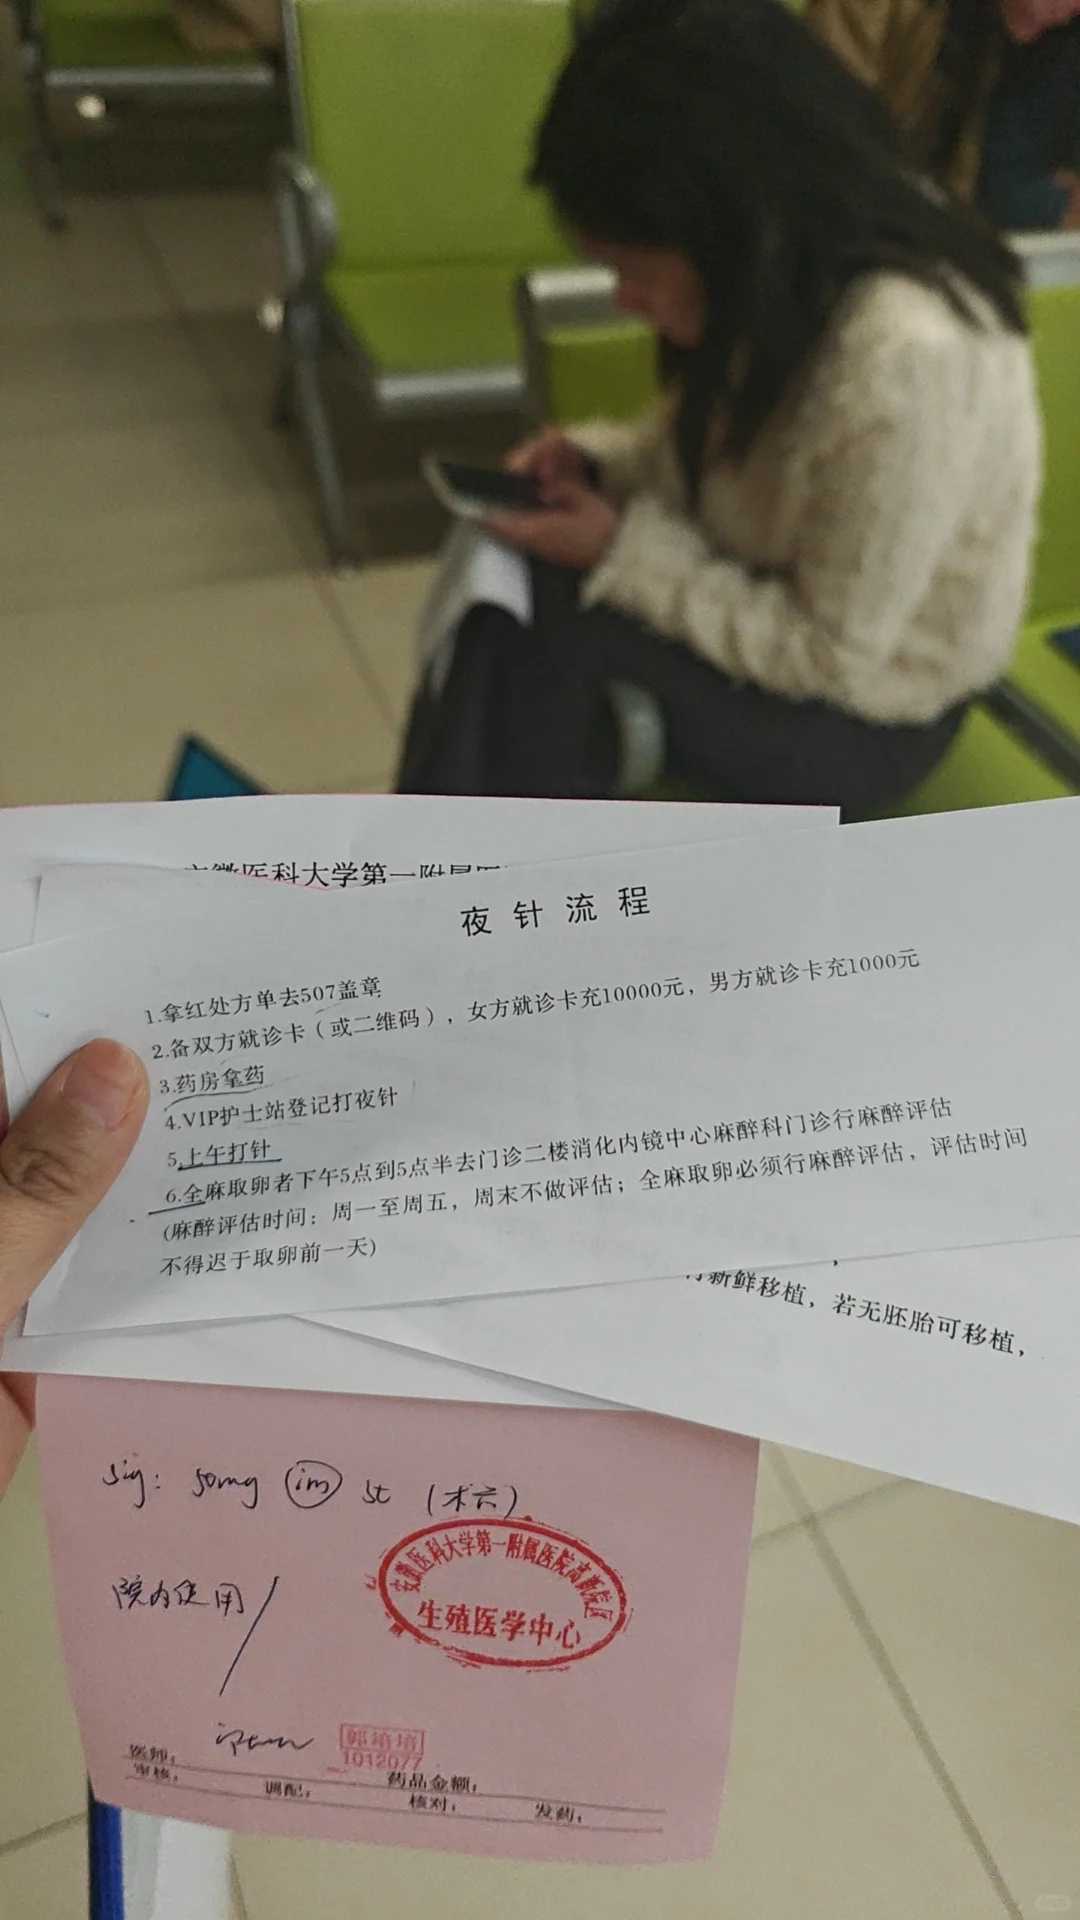 安徽医科大学第一附属医
夜针流程
1.拿红处方单去507盖章
2.备双方就诊卡（或二维码），女方就诊卡充10000元，男方就诊卡充1000元
3.药房拿药
4.VIP护士站登记打夜针
5.上午打针
6.全麻取卵者下午5点到5点半去门诊二楼消化内镜中心麻醉科门诊行麻醉评估
(麻醉评估时间：周一至周五，周末不做评估；全麻取卵必须行麻醉评估，评估时间
不得迟于取卵前一天)
行新鲜移植，若无胚胎可移植，
sig: 50mg im st (术六)
安徽医科大学第一附属医院高新院区
生殖医学中心
院内使用
1012077
医师：
药品金额：
审核：
调配：
核对：
发药：